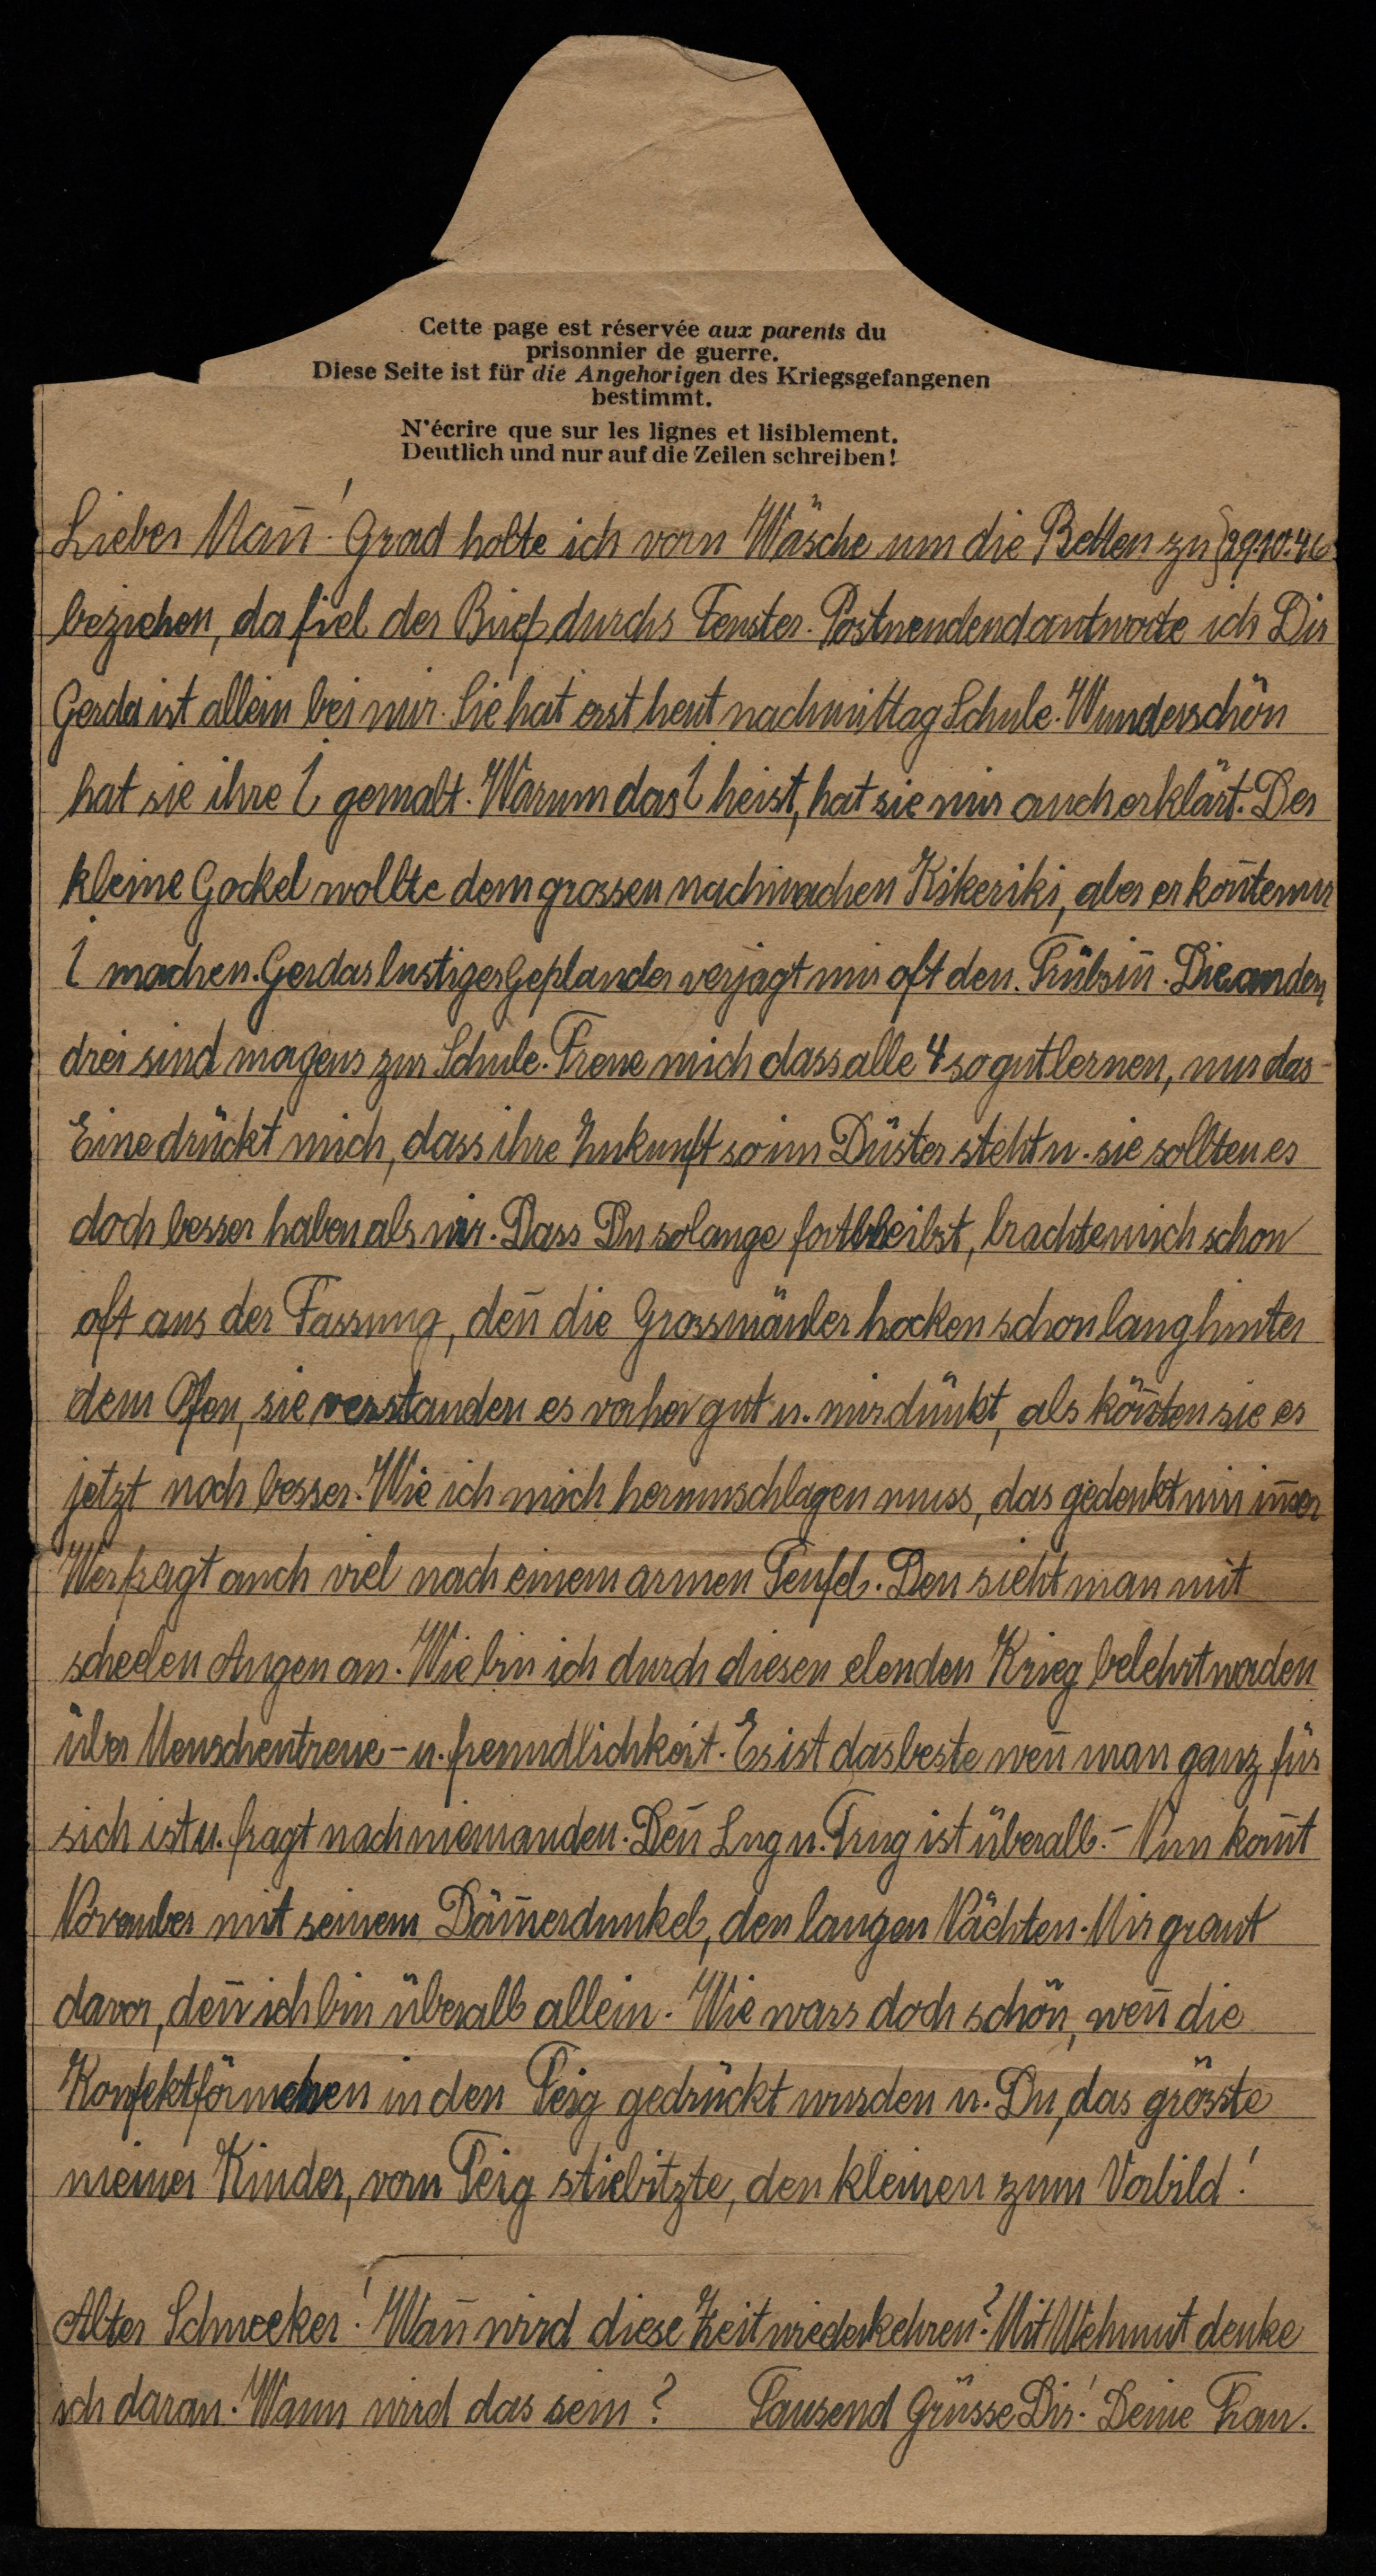 Cette page est réservée aux parents du
prisonnier de guerre.
Diese Seite ist für die Angehorigen des Kriegsgefangenen
bestimmt.
N'écrire que sur les lignes et lisiblement.
Deutlich und nur auf die Zeilen schreiben!
Lieber Man̄! Grad holte ich vorn Wäsche um die Betten zu 29.10.46
beziehen, da fiel der Brief durchs Fenster. Postwendend antworte ich Dir
Gerda ist allein bei mir. Sie hat erst heut nachmittag Schule. Wunderschön
hat sie ihre i gemalt. Warum das i heist, hat sie mir auch erklärt. Der
kleine Gockel wollte dem grossen nachmachen Kikeriki, aber er kon̄te nur
i machen. Gerdas lustiges Geplauder verjagt mir oft den Trübsin̄. Die andern
drei sind morgens zur Schule. Freue mich dass alle 4 so gut lernen, nur das
Eine drückt mich, dass ihre Zukunft so im Düster steht u. sie sollten es
doch besser haben als wir. Dass Du solange fortbleibst, brachte mich schon
oft aus der Fassung, den̄ die Grossmäuler hocken schon lang hinter
dem Ofen, sie verstanden es vorher gut u. mir dünkt, als kön̄ten sie es
jetzt noch besser. Wie ich mich herumschlagen muss, das gedenkt mir im̄er
Wer fragt auch viel nach einem armen Teufel. Den sieht man mit
scheelen Augen an. Wie bin ich durch diesen elenden Krieg belehrt worden
über Menschentreue- u. freundlichkeit. Es ist das beste wen̄ man ganz für
sich ist u. fragt nach niemanden. Den̄ Lug u. Trug ist überall. - Nun kom̄t
November mit seinem Däm̄erdunkel, den langen Nächten. Mir graut
davor, den̄ ich bin überall allein. Wie wars doch schön, wen̄ die
Konfektförmchen in den Teig gedrückt wurden u. Du, das grösste
meiner Kinder, vom Teig stiebitzte, den kleinen zum Vorbild!
Alter Schmecker! Wan̄ wird diese Zeit wiederkehren? Mit Wehmut denke
ich daran. Wann wird das sein? Tausend Grüsse Dir! Deine Frau.